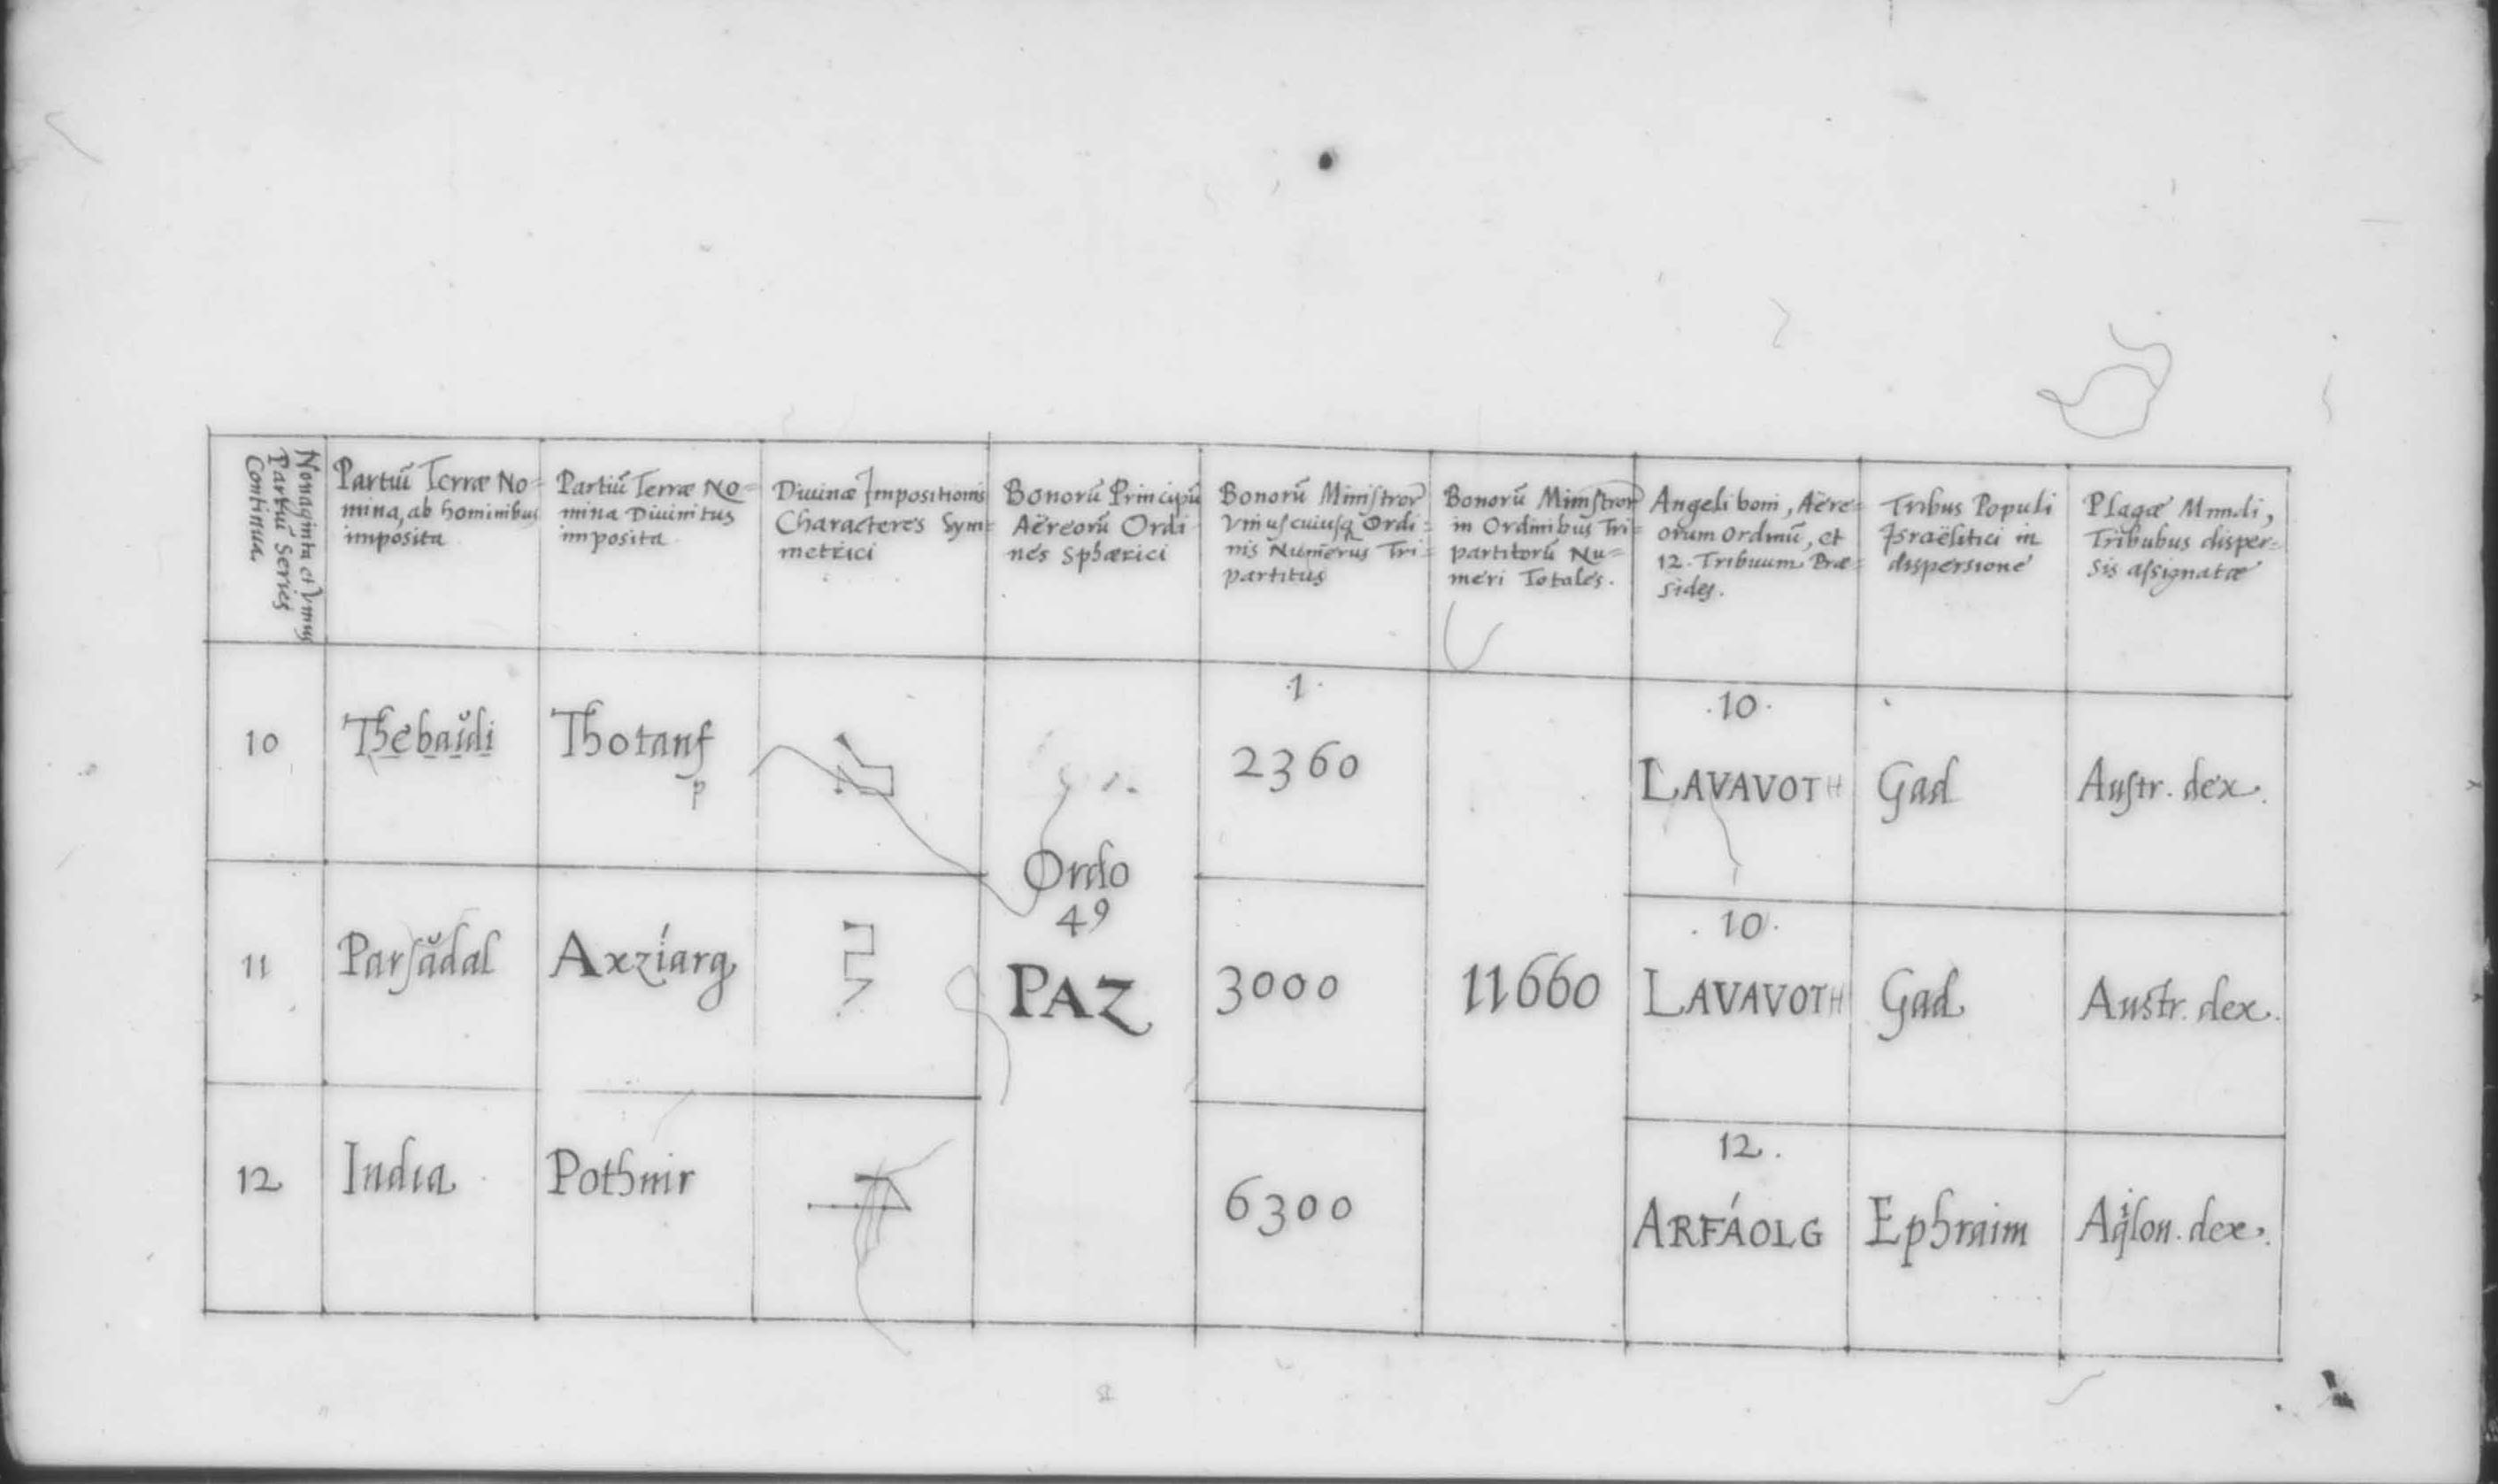 Nonaginta et Vnius
Partiũ Series
Continua.
Partiũ Terræ No=
mina, ab hominibus
imposita
Partiũ Terræ No=
mina Diuinitus
imposita
Diuinæ Impositionis
Characteres Sym=
metrici
Bonorũ Principũ
Aëreorũ Ordi
nes Sphærici
Bonorũ Ministror
Vniuscuiusq Ordi=
nis Numerus Tri=
partitus
Bonorũ Ministror
in Ordinibus Tri=
partitorũ Nu=
meri Totales.
Angeli boni, Aëre=
orum Ordinũ, et
12. Tribuum Præ=
sides.
Tribus Populi
Israëlitici in
dispersione
Plagæ Mundi,
Tribubus disper=
sis assignatæ
10
Thebaidi
Thotanf
p
Ordo
49
PAZ
.1.
2360
11660
.10.
LAVAVOTH
Gad
Austr. dex.
11
Parsădal
Axzíarg
3000
.10.
LAVAVOTH
Gad
Austr. dex.
12
India
Pothnir
6300
12.
ARFÁOLG
Ephraim
Aqlon. dex.